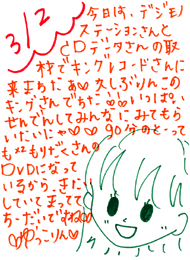 3/2
今日は、デジモノ
ステーションさんと
CDデータさんの取
材でキングレコードさんに
来まちたぁ♡久しぶりんこの
キングさんでちた♡♡いっぱい
せんでんしてみんなにみてもら
いたいにゃ♡♡90分のとって
も××もりだくさんの
DVDになって
いるから、きたい
していてまってて
ちーだいですね♡♡
♡♡ゆうこりん♡